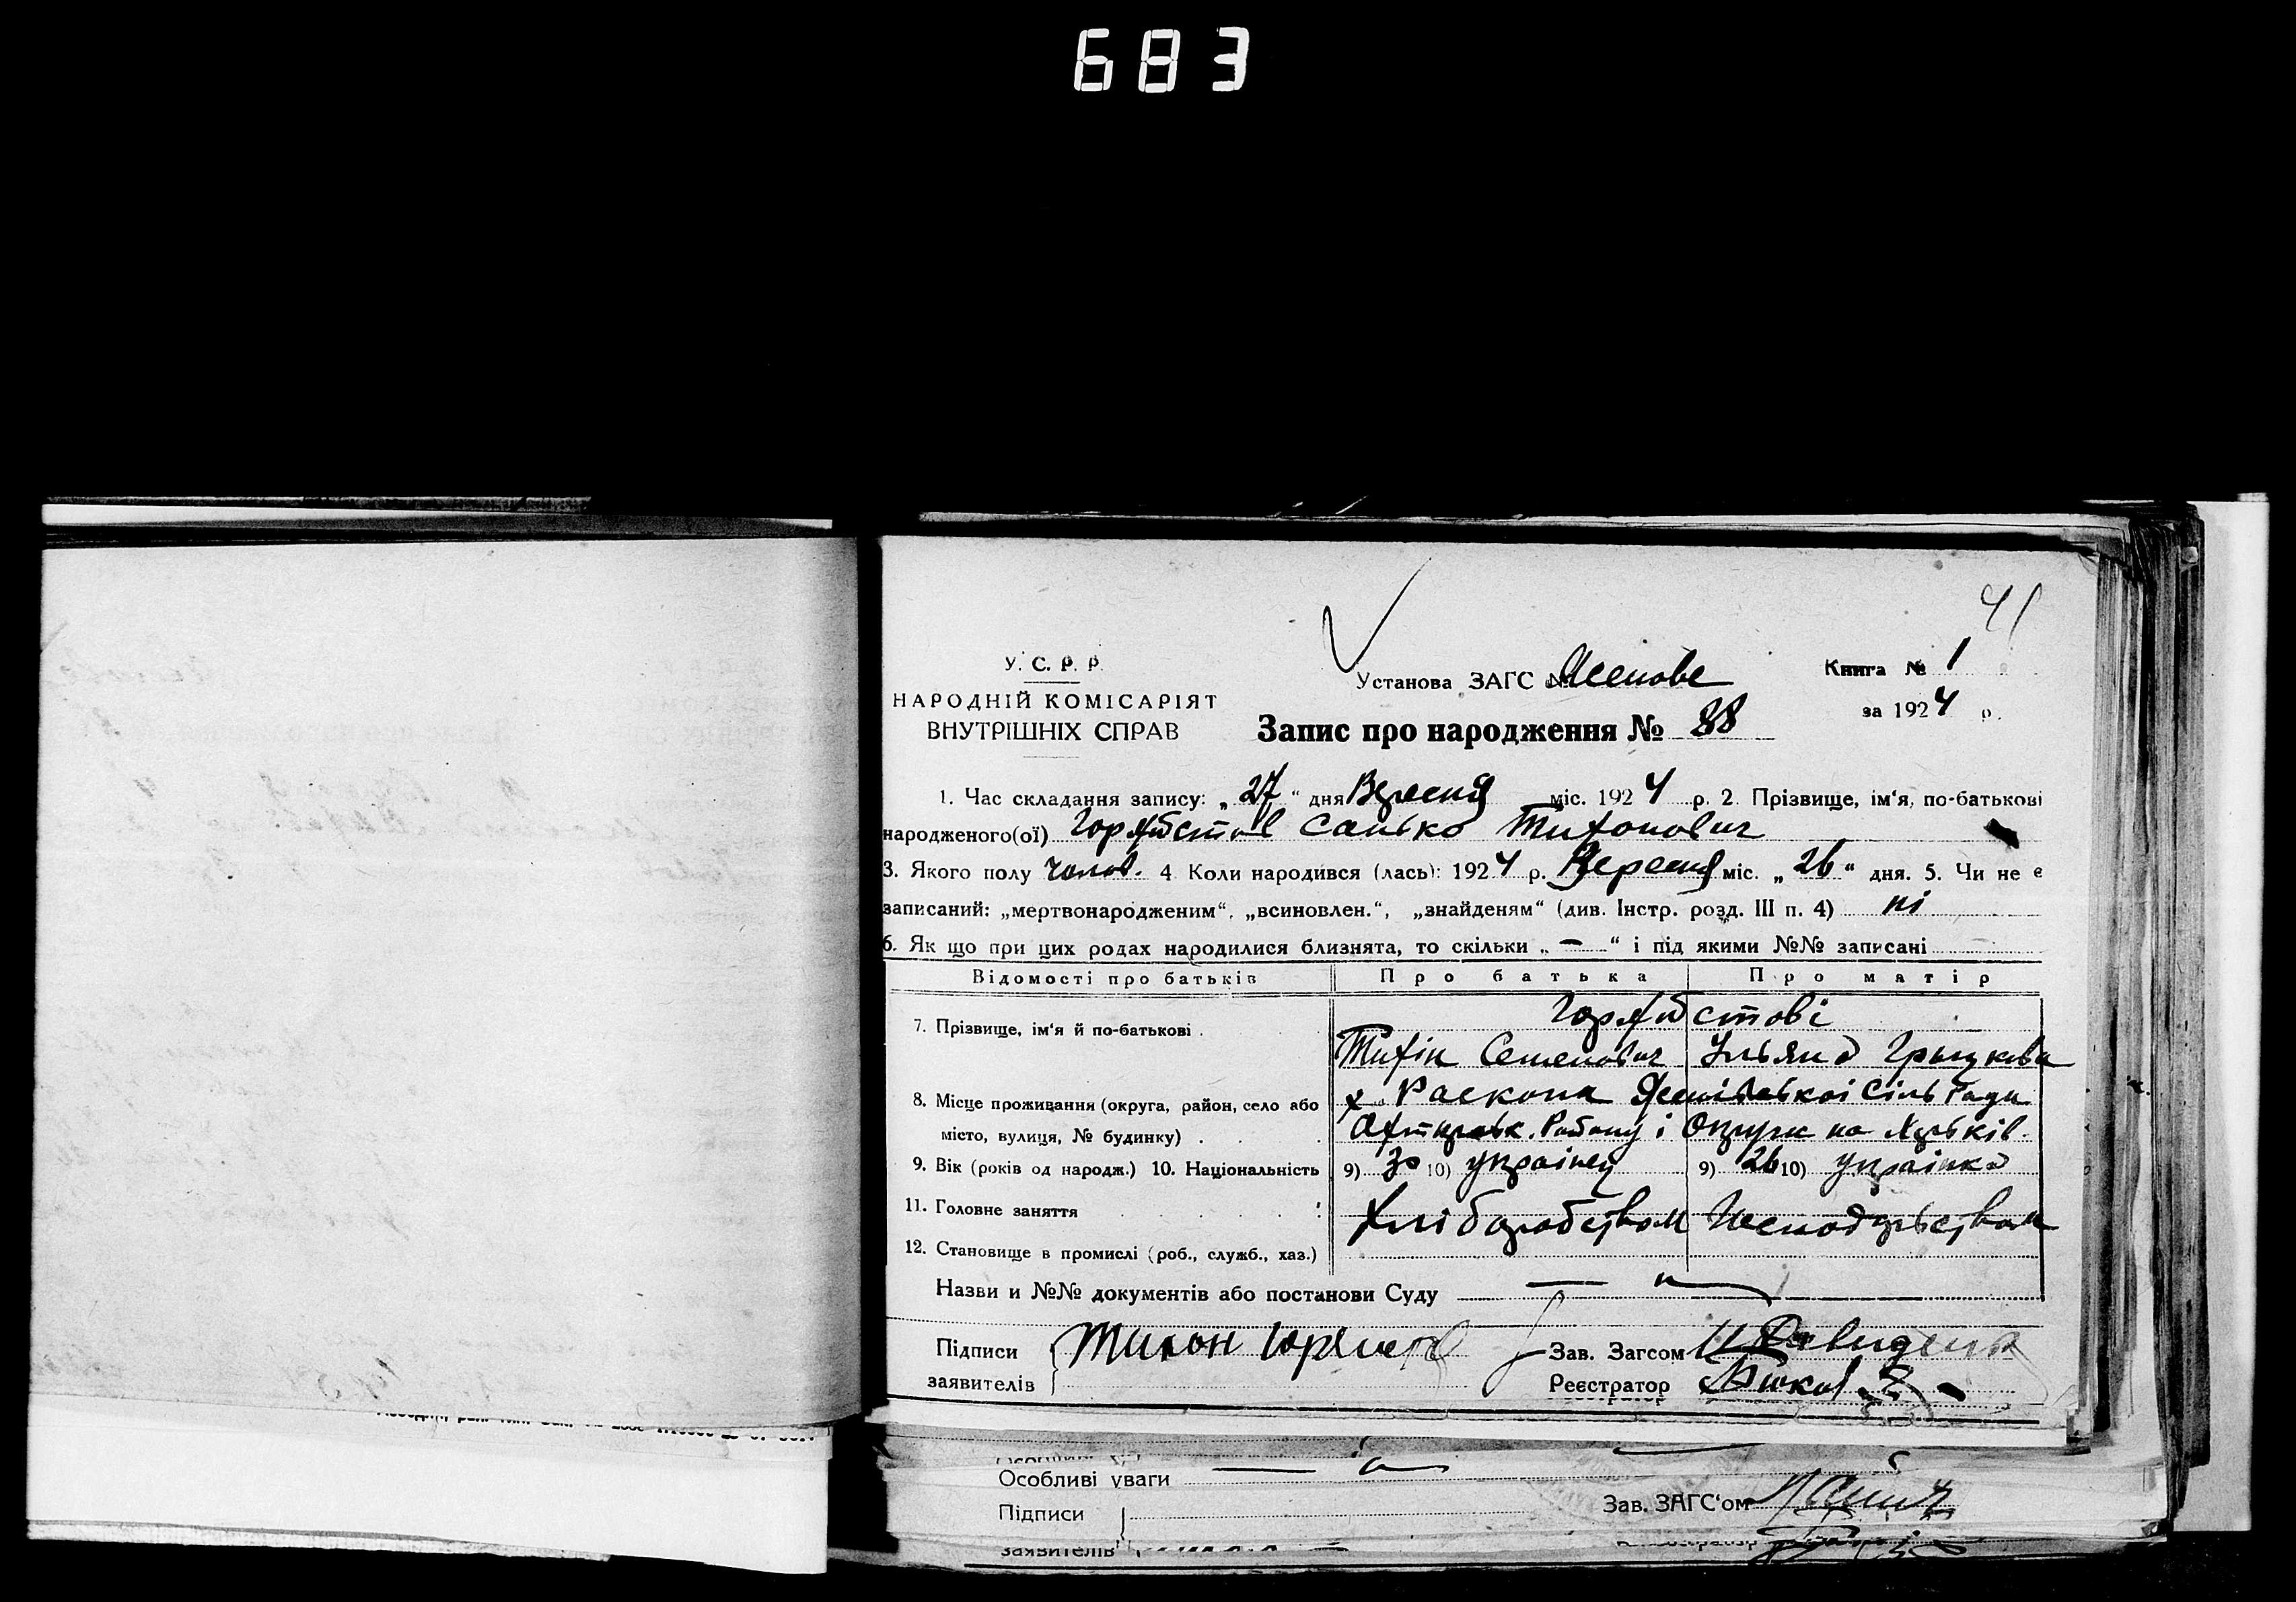 683
41
У. С. Р. Р.
НАРОДНІЙ КОМІСАРІЯТ
ВНУТРІШНІХ СПРАВ
Установа ЗАГС № Ясенове
Книга № 1
за 1924 р.
Запис про народження № 88
1. Час складання запису: „27“ дня Вересня міс. 1924 р. 2. Прізвище, ім‘я, по-батькові
народженого(ої) Санько Тихонович
3. Якого полу чолов. 4. Коли народився (лась): 1924 р. Вересня міс. „26“ дня. 5. Чи не є
записаний: „мертвонародженим“, „всиновлен.“, „знайденям“ (див. Інстр. розд. III п. 4) ні
6. Як що при цих родах народилися близнята, то скільки „—“ і під якими №№ записані
Відомості про батьків Про батька Про матір
7. Прізвище, ім‘я й по-батькові .
Тихін Семенович Ульяна Грыцкова
8. Місце проживання (округа, район, село або х. Раскопа Ясенівської Сіль Ради
місто, вулиця, № будинку) . Охтирськ. Району і Округи на Харьків.
9. Вік (років од народж.) 10. Національність 9) 30 10) українец 9) 26 10) українка
11. Головне заняття
Хліборобством
12. Становище в промислі (роб., служб., хаз.)
Назви и №№ документів або постанови Суду — „ —
Підписи Тихон Зав. Загсом
заявителів Реєстратор
Особливі уваги — „ —
Підписи Зав. ЗАГС‘ом
заявителів